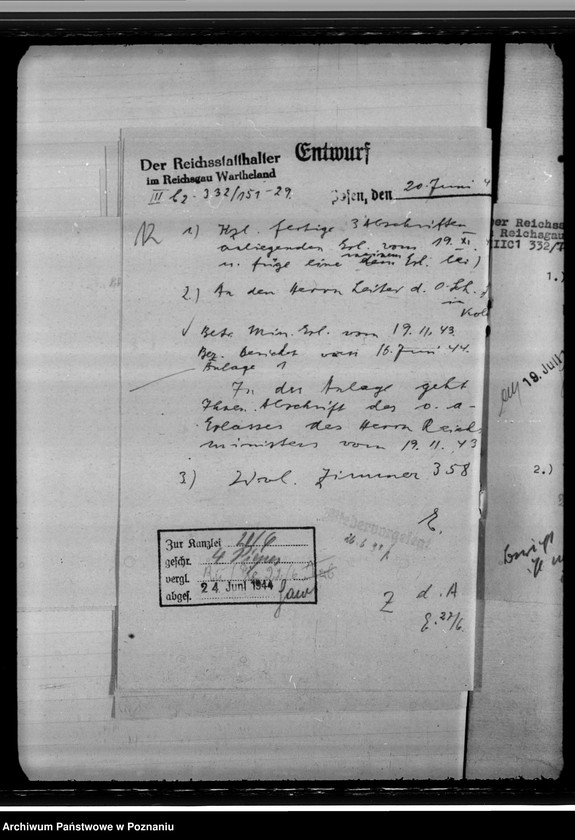 Der Reichsstatthalter
im Reichsgau Wartheland
Entwurf
III C 2. 332/151-29.
Posen, den 20. Juni 4
1) Kzl. fertige 3 Abschriften
anliegenden Erl. vom 19. XI.
u. füge eine meinem Erl. bei)
2) An den Herrn Leiter d. O. Sch.
in
Kol
Betr. Min. Erl. vom 19.11.43.
Bez. Bericht vom 16. Juni 44.
Anlage 1
In der Anlage geht
Ihnen Abschrift des o. a.
Erlasses des Herrn Reichs
ministers vom 19.11.43
3) Wvl. Zimmer 358
E.
Wiedervorgelegt
26.6.44
Zur Kanzlei 21/6
geschr. 4
vergl. 22/6
abges. 24. Juni 1944
Z d. A
E. 27/6.
er Reichss
Reichsgau
IIC1 332/
1.)
19. Juli
2.)
Archiwum Państwowe w Poznaniu